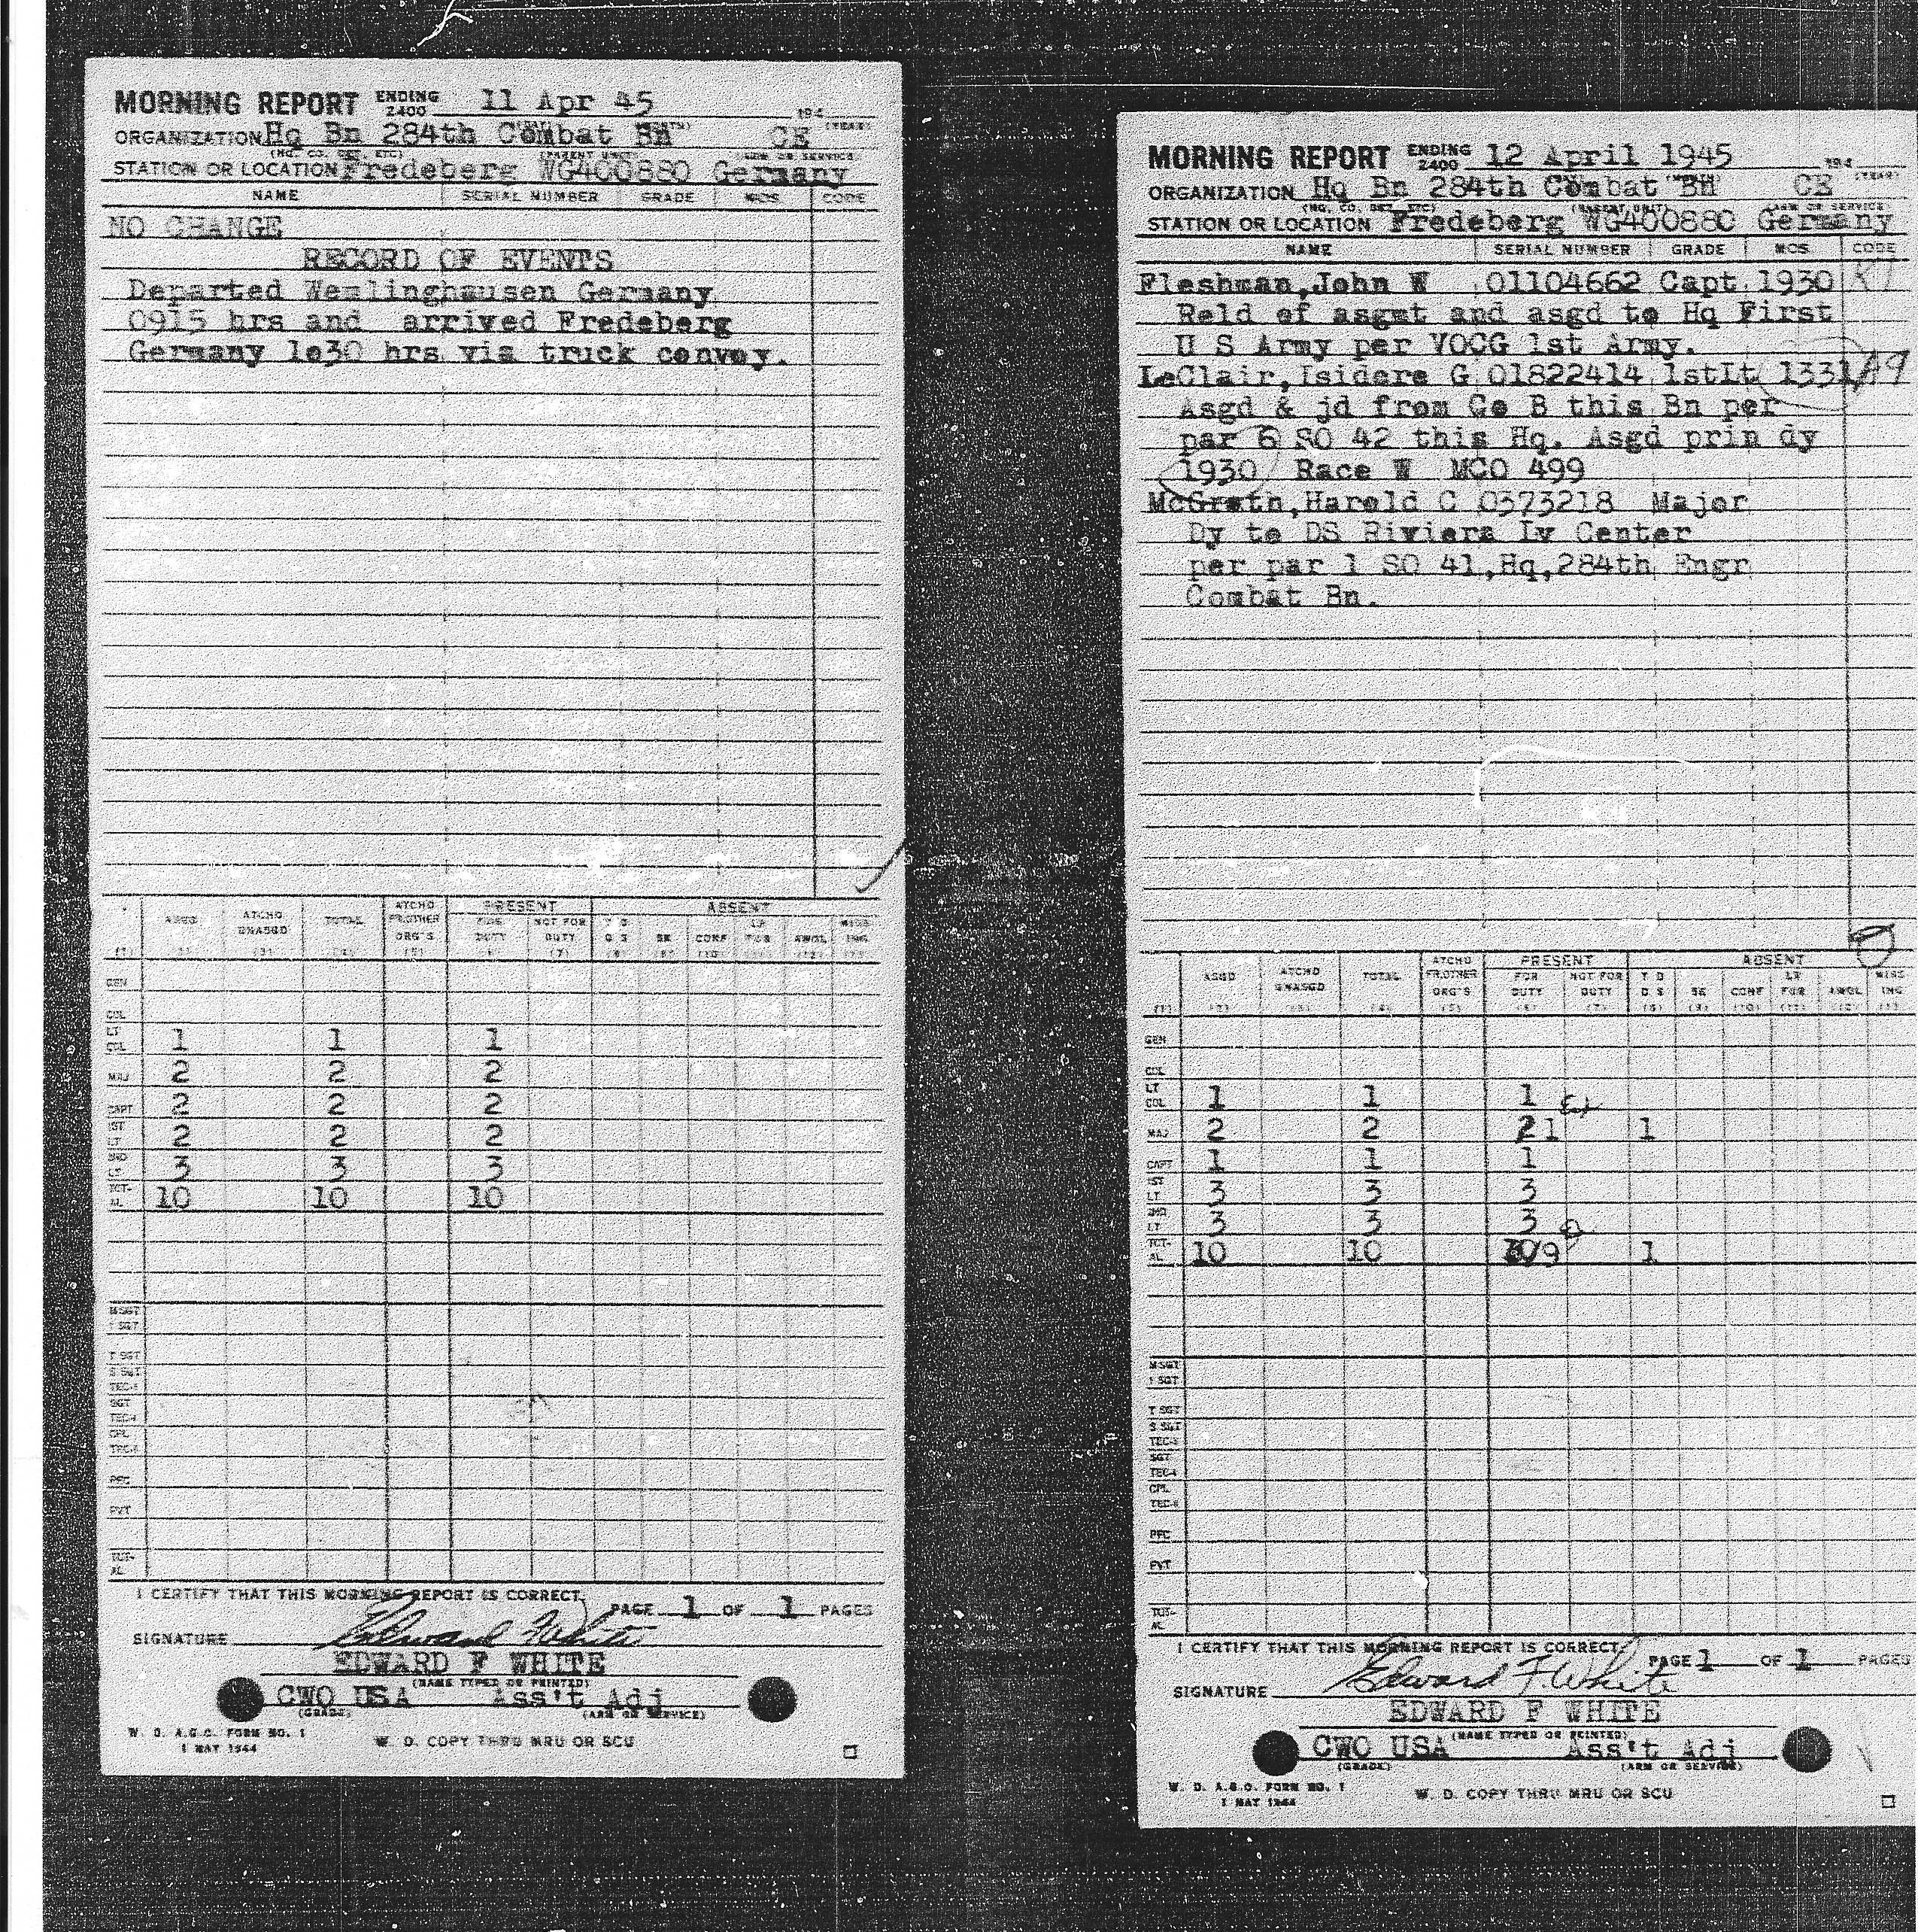 MORNING REPORT ENDING 2400 11 Apr 45 194
ORGANIZATION Hq Bn 284th Combat Bn CE
(HQ. CO. DET. ETC) (PARENT UNIT) (ARM OR SERVICE) (YEAR)
STATION OR LOCATION Fredeberg WG400880 Germany
NAME SERIAL NUMBER GRADE MOS CODE
NO CHANGE
RECORD OF EVENTS
Departed Wemlinghausen Germany
0915 hrs and arrived Fredeberg
Germany 1o30 hrs via truck convoy.
PRESENT ABSENT
ASGD ATCHD UNASGD TOTAL ATCHD FR.OTHER ORG'S FOR DUTY NOT FOR DUTY T D D S SK CONF LV FUR AWOL MISS ING
(1) (2) (3) (4) (5) (6) (7) (8) (9) (10) (11) (12) (13)
GEN
COL
LT COL 1 1 1
MAJ 2 2 2
CAPT 2 2 2
1ST LT 2 2 2
2ND LT 3 3 3
TOT-AL 10 10 10
M SGT
1 SGT
T SGT
S SGT
TEC-3
SGT
TEC-4
CPL
TEC-5
PFC
PVT
TOT-AL
I CERTIFY THAT THIS MORNING REPORT IS CORRECT.
PAGE 1 OF 1 PAGES
SIGNATURE Edward F White
EDWARD F WHITE
(NAME TYPED OR PRINTED)
CWO USA Ass't Adj
(GRADE) (ARM OR SERVICE)
W. D. A.G.O. FORM NO. 1
1 MAY 1944
W. D. COPY THRU MRU OR SCU
MORNING REPORT ENDING 2400 12 April 1945 194
ORGANIZATION Hq Bn 284th Combat Bn CE
(HQ. CO. DET. ETC) (PARENT UNIT) (ARM OR SERVICE) (YEAR)
STATION OR LOCATION Fredeberg WG400880 Germany
NAME SERIAL NUMBER GRADE MOS CODE
Fleshman,John W 01104662 Capt 1930
Reld of asgmt and asgd to Hq First
U S Army per VOCG 1st Army.
LeClair,Isidore G 01822414 1stLt 1331 A9
Asgd & jd from Co B this Bn per
par 6 SO 42 this Hq. Asgd prin dy
1930 Race W MCO 499
McGrath,Harold C 0373218 Major
Dy to DS Riviera Lv Center
per par 1 SO 41,Hq,284th Engr
Combat Bn.
PRESENT ABSENT
ASGD ATCHD UNASGD TOTAL ATCHD FR.OTHER ORG'S FOR DUTY NOT FOR DUTY T D D S SK CONF LV FUR AWOL MISS ING
(1) (2) (3) (4) (5) (6) (7) (8) (9) (10) (11) (12) (13)
GEN
COL
LT COL 1 1 1
MAJ 2 2 2 1 1
CAPT 1 1 1
1ST LT 3 3 3
2ND LT 3 3 3
TOT-AL 10 10 10 9 1
M SGT
1 SGT
T SGT
S SGT
TEC-3
SGT
TEC-4
CPL
TEC-5
PFC
PVT
TOT-AL
I CERTIFY THAT THIS MORNING REPORT IS CORRECT.
PAGE 1 OF 1 PAGES
SIGNATURE Edward F White
EDWARD F WHITE
(NAME TYPED OR PRINTED)
CWO USA Ass't Adj
(GRADE) (ARM OR SERVICE)
W. D. A.G.O. FORM NO. 1
1 MAY 1944
W. D. COPY THRU MRU OR SCU